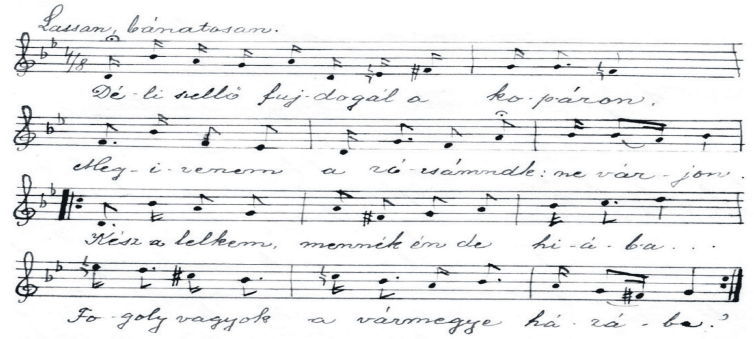 Lassan, bánatosan.
4/8
Dé-li szellő fuj-dogál a ko-páron.
Meg-i-zenem a ró-zsámnak: ne vár-jon.
Kész a lelkem, mennék én de hi-á-ba...
Fo-goly vagyok a vármegye há-zá-ba.